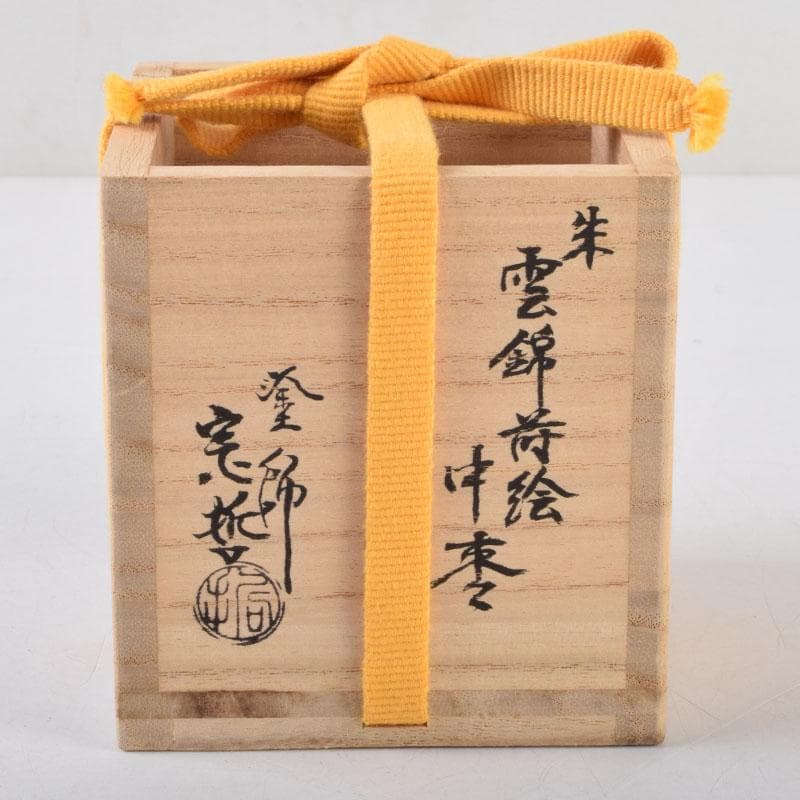 朱
雲錦蒔絵
中棗
塗師
宗哲